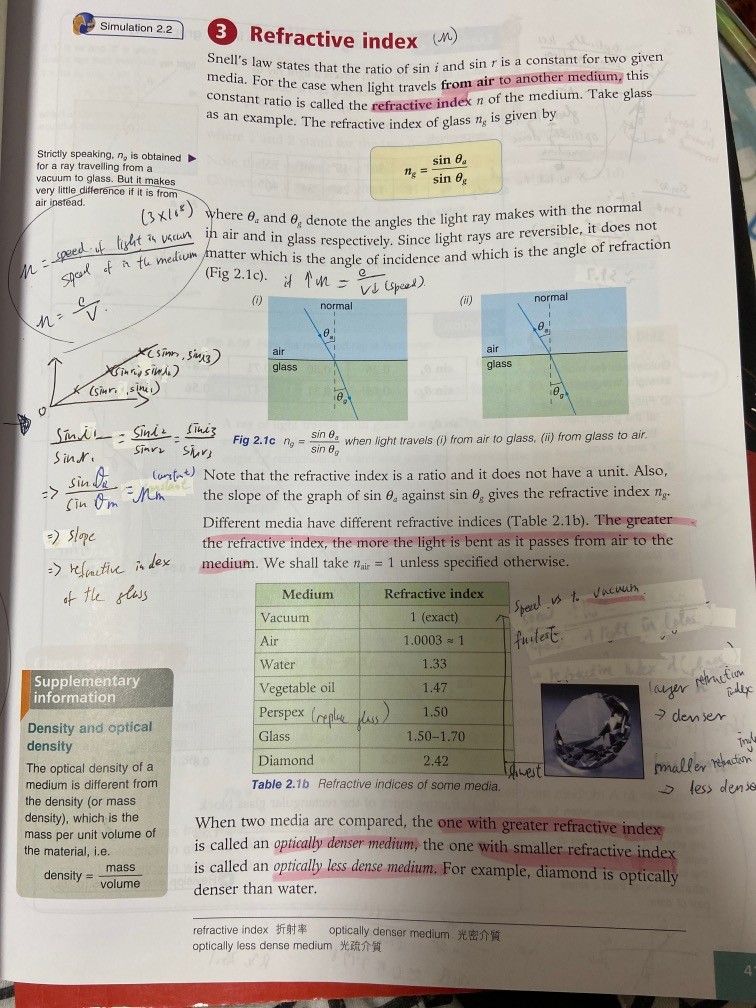 Simulation 2.2
3 Refractive index (n)
Snell's law states that the ratio of sin i and sin r is a constant for two given
media. For the case when light travels from air to another medium, this
constant ratio is called the refractive index n of the medium. Take glass
as an example. The refractive index of glass n_g is given by
n_g = sin θ_a / sin θ_g
Strictly speaking, n_g is obtained ▶
for a ray travelling from a
vacuum to glass. But it makes
very little difference if it is from
air instead.
(3×10⁸)
n = speed of light in vacuum / speed of in the medium
n = c/v.
where θ_a and θ_g denote the angles the light ray makes with the normal
in air and in glass respectively. Since light rays are reversible, it does not
matter which is the angle of incidence and which is the angle of refraction
(Fig 2.1c).
if ↑n = c / v↓ (speed)
(i)
normal
θ_a
air
glass
θ_g
(ii)
normal
θ_a
air
glass
θ_g
Fig 2.1c n_g = sin θ_a / sin θ_g when light travels (i) from air to glass, (ii) from glass to air.
(sin r₁, sin i₁)
0
sin i₁ / sin r₁ = sin i₂ / sin r₂ = sin i₃ / sin r₃
=> sin θ_a / sin θ_m = n_m (constant)
=> slope
=> refractive index
of the glass
Note that the refractive index is a ratio and it does not have a unit. Also,
the slope of the graph of sin θ_a against sin θ_g gives the refractive index n_g.
Different media have different refractive indices (Table 2.1b). The greater
the refractive index, the more the light is bent as it passes from air to the
medium. We shall take n_air = 1 unless specified otherwise.
Medium Refractive index
Vacuum 1 (exact)
Air 1.0003 ≈ 1
Water 1.33
Vegetable oil 1.47
Perspex (replace glass) 1.50
Glass 1.50–1.70
Diamond 2.42
Table 2.1b Refractive indices of some media.
vacuum
slowest
larger refraction
index
→ denser
smaller refraction
→ less dense
Supplementary
information
Density and optical
density
The optical density of a
medium is different from
the density (or mass
density), which is the
mass per unit volume of
the material, i.e.
density = mass / volume
When two media are compared, the one with greater refractive index
is called an optically denser medium, the one with smaller refractive index
is called an optically less dense medium. For example, diamond is optically
denser than water.
refractive index 折射率 optically denser medium 光密介質
optically less dense medium 光疏介質